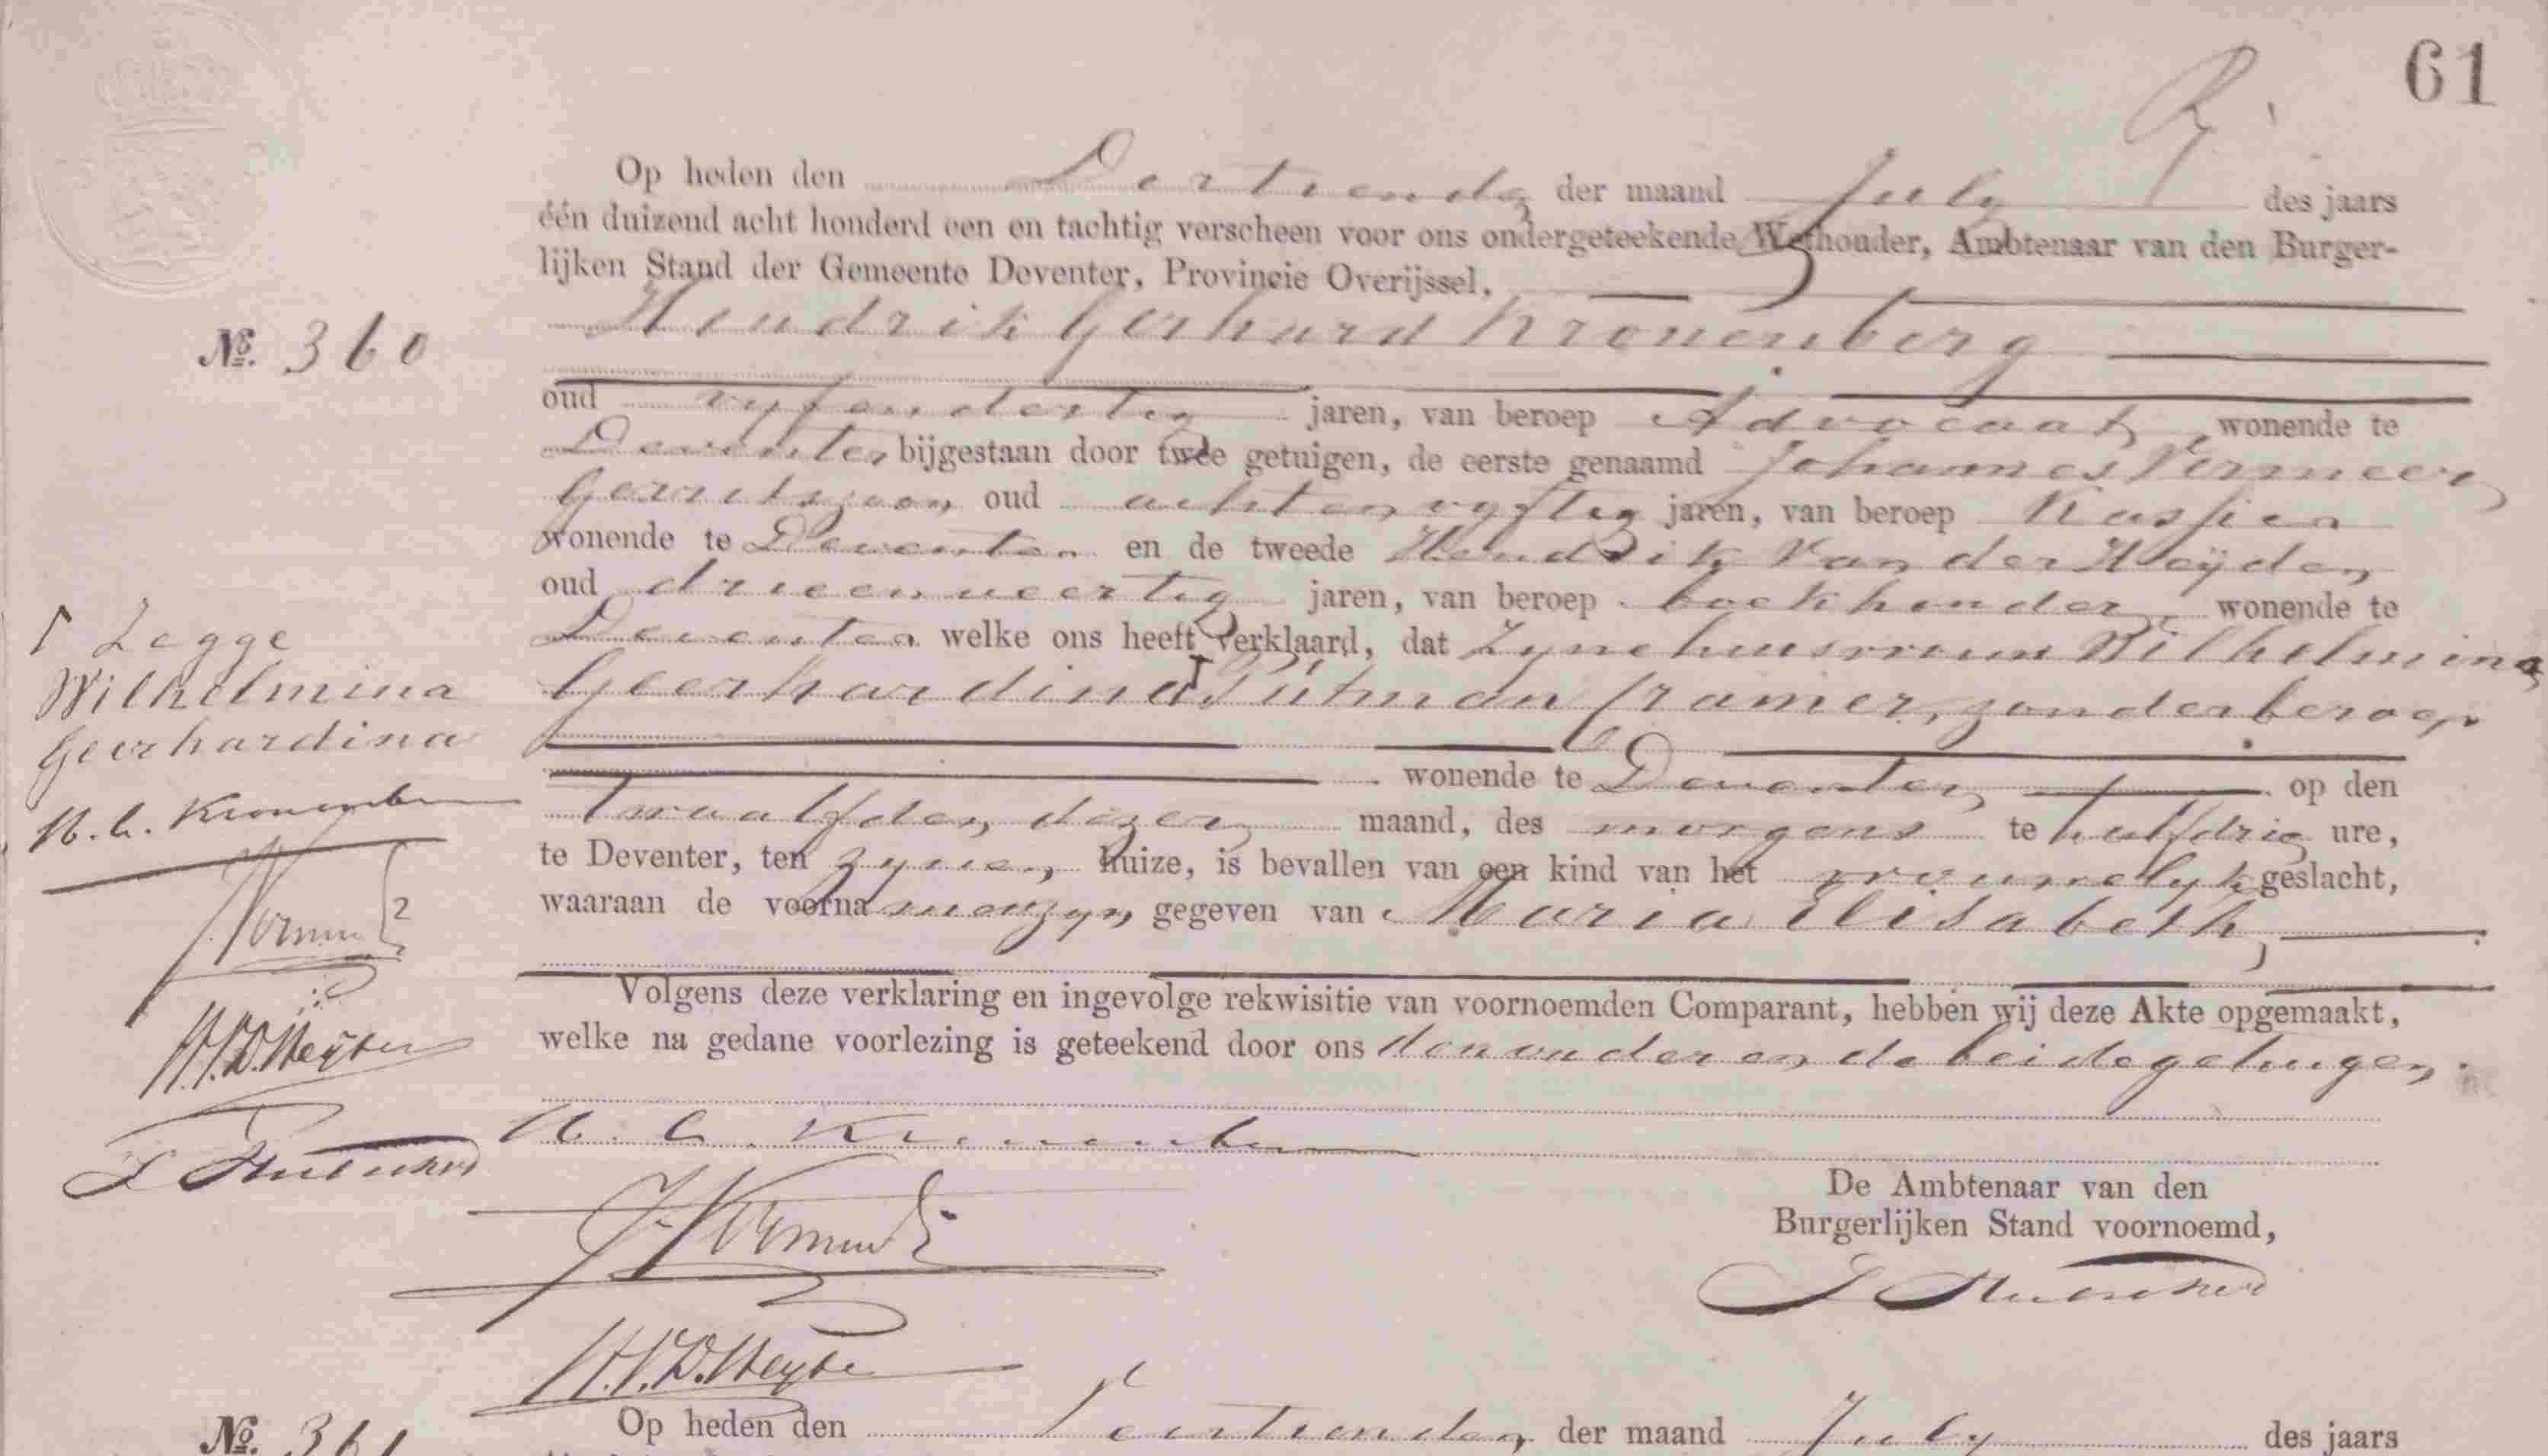 61
Op heden den Dertiende der maand July des jaars
één duizend acht honderd een en tachtig verscheen voor ons ondergeteekende Wethouder, Ambtenaar van den Burger-
lijken Stand der Gemeente Deventer, Provincie Overijssel,
Nº. 360
Hendrik Gerhard Kronenberg
oud vyfendertig jaren, van beroep Advocaat, wonende te
Deventer bijgestaan door twee getuigen, de eerste genaamd Johannes Vermeer
Gerritszoon oud achtenvyftig jaren, van beroep Kassier
wonende te Deventer en de tweede Hendrik Van der Heÿden
oud drieenveertig jaren, van beroep boekhouder, wonende te
Deventer welke ons heeft verklaard, dat zyne huisvrouw Wilhelmina
Geerhardina Putman Cramer, zonder beroep
wonende te Deventer op den
Twaalfden dezer maand, des morgens te halfdrie ure,
te Deventer, ten zynen huize, is bevallen van een kind van het vrouwelyk geslacht,
waaraan de voornamen zyn gegeven van Maria Elisabeth,
Volgens deze verklaring en ingevolge rekwisitie van voornoemden Comparant, hebben wij deze Akte opgemaakt,
welke na gedane voorlezing is geteekend door ons den vader en de beide getuigen.
Legge
Wilhelmina
Geerhardina
H. G. Kronenberg
J. Vermeer
H. V. D. Heÿden
H. G. Kronenberg
J. Vermeer
H. V. D. Heyden
De Ambtenaar van den
Burgerlijken Stand voornoemd,
Nº. 361
Op heden den Veertienden der maand July des jaars